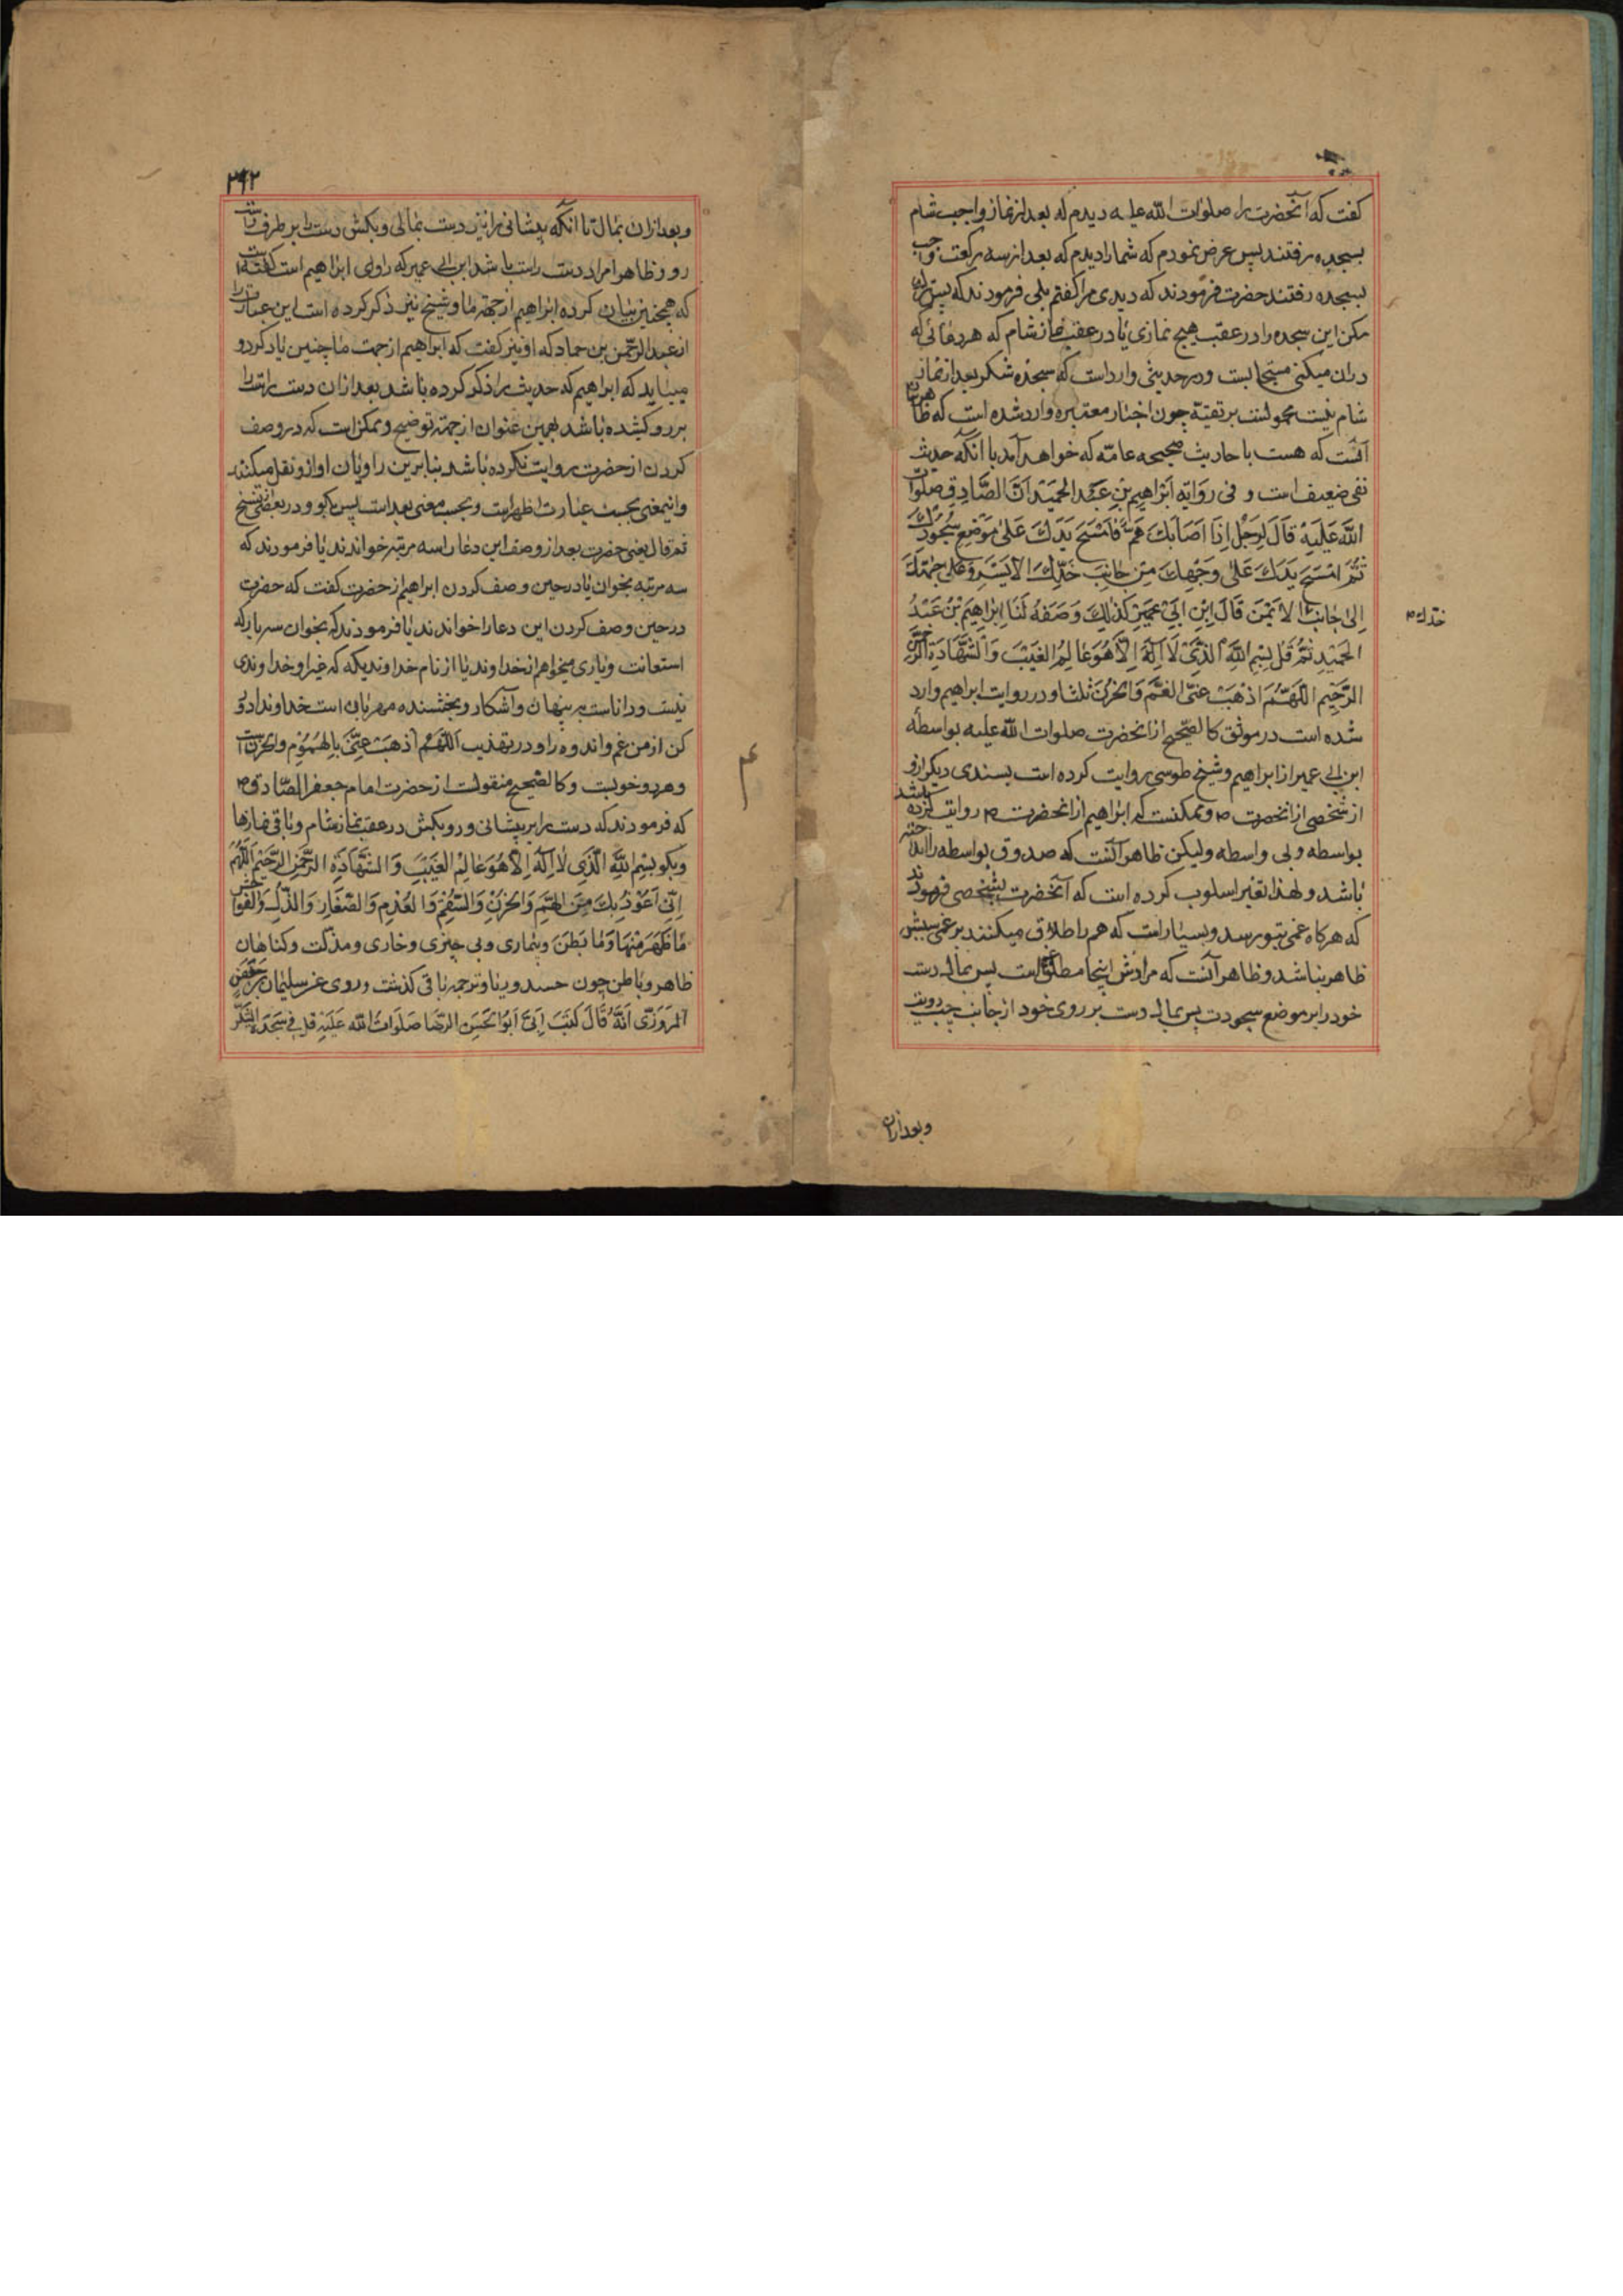 گفت که آنحضرت را صلوات الله علیه دیدم که بعد از نماز واجب شام
بسجده رفتند پس عرض نمودم که شما را دیدم که بعد از سه رکعت واجب
بسجده رفتند حضرت فرمودند که دیدی مرا گفتم بلی فرمودند که پس ترک
مکن این سجده را در عقب هیچ نمازی یا در عقب نماز شام که هر دعائی که
در ان میکنی مستجابست و در حدیثی وارد است که سجده شکر بعد از نماز
شام نیست محمولست بر تقیه چون اخبار معتبره وارد شده است که ظاهرش
آنست که هست با حادیث صحیحه عامه که خواهد آمد با آنکه حدیث
نفی ضعیف است و فی روایه ابراهیم بن عبد الحمید ان الصادق صلوات
الله علیه قال لرجل اذا اصابک هم فامسح یدک علی موضع سجودک
ثم امسح یدک علی وجهک من جانب خدک الایسر و علی جبهتک
الی جانب الایمن قال ابن ابی عمیر کذلک وصفه لنا ابراهیم بن عبد
خدک
الحمید ثم قل بسم الله الذی لا اله الا هو عالم الغیب و الشهادة الرحمن
الرحیم اللهم اذهب عنی الغم و الحزن ثلثا و در روایت ابراهیم وارد
شده است در موثق کالصحیح از انحضرت صلوات الله علیه بواسطه
ابن ابی عمیر از ابراهیم و شیخ طوسی روایت کرده است بسندی دیکر از او
از شخصی از انحضرت و ممکنست که ابراهیم از انحضرت روایت کرده باشد
بواسطه و بی واسطه ولیکن ظاهر آنست که صدوق بواسطه را انداخته
باشد و لهذا تغیر اسلوب کرده است که آنحضرت بشخصی فرمودند
که هرکاه غمی بتو رسد و بسیار است که هم را طلاق میکنند بر غمی
ظاهر نباشد و ظاهر آنست که مرادش اینجا مطلق غم است پس بمال دست
خود را بر موضع سجودت پس بمال دست بر روی خود از جانب چپ رویت
و بعد ازان
۲۴۲
و بعد ازان بمال تا انکه پیشانی را نیز دست بمالی و بکش دست را بر طرف راست
رو و ظاهرا مراد دست راست باشد ابن ابی عمیر که راوی ابراهیم است گفته است
که همچنین بیان کرده ابراهیم از جهة ما و شیخ نیز ذکر کرده است این عبارت را
از عبد الرحمن بن حماد که او نیز گفت که ابراهیم از جهت ما چنین یاد کرد و
میباید که ابراهیم که حدیث را ذکر کرده باشد بعد ازان دست راست را
بر رو کشیده باشد بهمین عنوان از جهة توضیح و ممکن است که در وصف
کردن از حضرت روایت نکرده باشد بنابرین راویان او ازو نقل میکنند
و اینمعنی بحسب عبارت اظهر است و بحسب معنی بعید است پس بکو و در بعضی از نسخ
ثم قال یعنی حضرت بعد از وصف این دعا را سه مرتبه خواندند یا فرمودند که
سه مرتبه بخوان یا در حین وصف کردن ابراهیم از حضرت گفت که حضرت
در حین وصف کردن این دعا را خواندند یا فرمودند که بخوان سه بار که
استعانت و یاری میخواهم از خداوند یا از نام خداوندیکه که غیر او خداوندی
نیست و داناست بر پنهان و آشکار و بخشنده مهربان است خداوندا دور
کن از من غم و اندوه را و در تهذیب اللهم اذهب عنی بالهموم و الحزن است
و هر دو خوبست و کالصحیح منقولست از حضرت امام جعفر الصادق
که فرمودند که دست را بر پیشانی و رو بکش در عقب نماز شام و باقی نمازها
و بکو بسم الله الذی لا اله الا هو عالم الغیب و الشهادة الرحمن الرحیم اللهم
انی اعوذ بک من الهم و الحزن و السقم و العدم و الصغار و الذل و الفواحش
ما ظهر منها و ما بطن و بیماری و بی چیزی و خاری و مذلت و کناهان
ظاهر و باطن چون حسد و ریا و ترجمه باقی کذشت و روی عن سلیمان بن حفص
المروزی انه قال کتب الی ابوا لحسن الرضا صلوات الله علیه قل فی سجدة الشکر